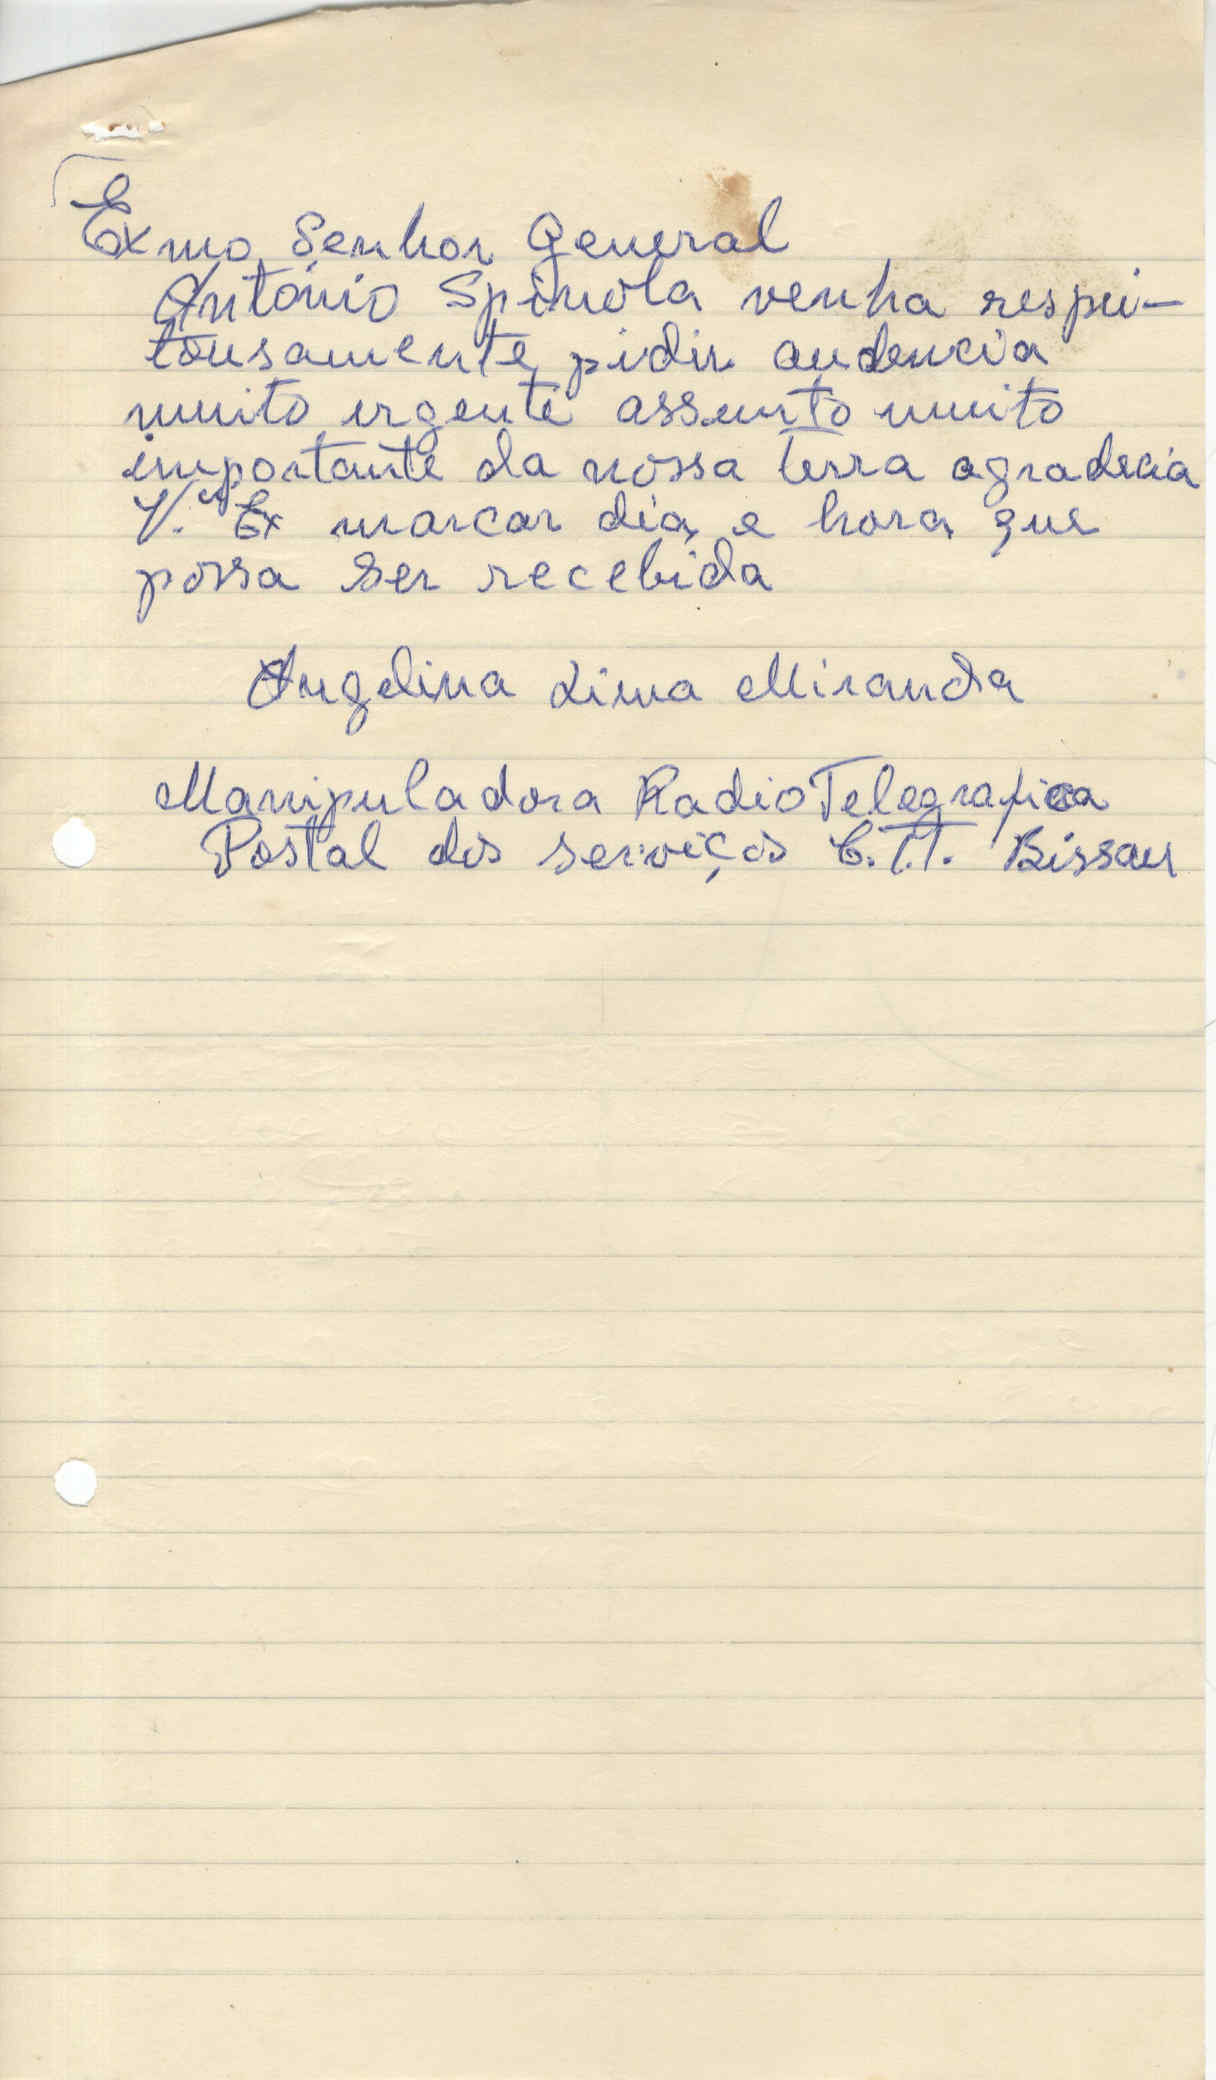 Exmo Senhor General
António Spinola venha respei-
tousamente pidir audencia
muito urgente assunto muito
importante da nossa terra agradecia
V.ª Ex marcar dia e hora que
possa ser recebida
Angelina Lima Miranda
Manipuladora RadioTelegrafica
Postal dos serviços C.T.T. Bissau